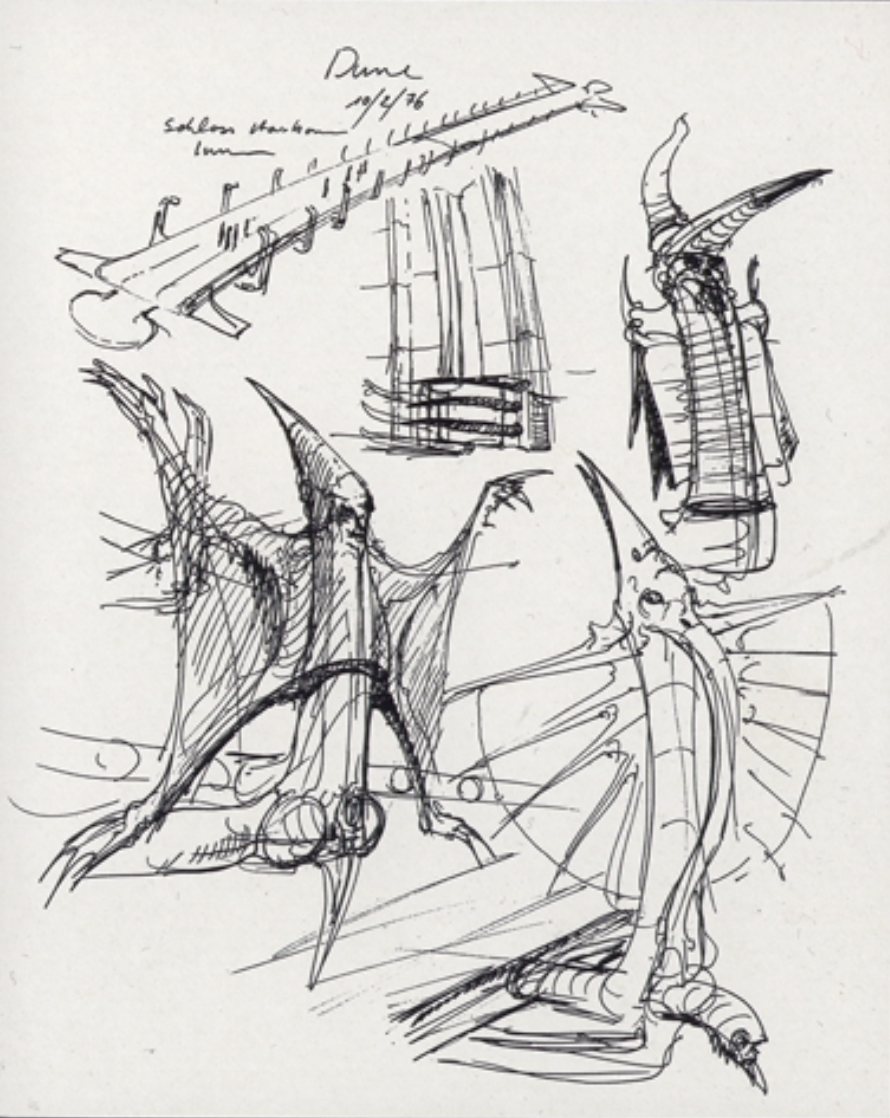 Dune
10/2/76
Schloss Harkonnen